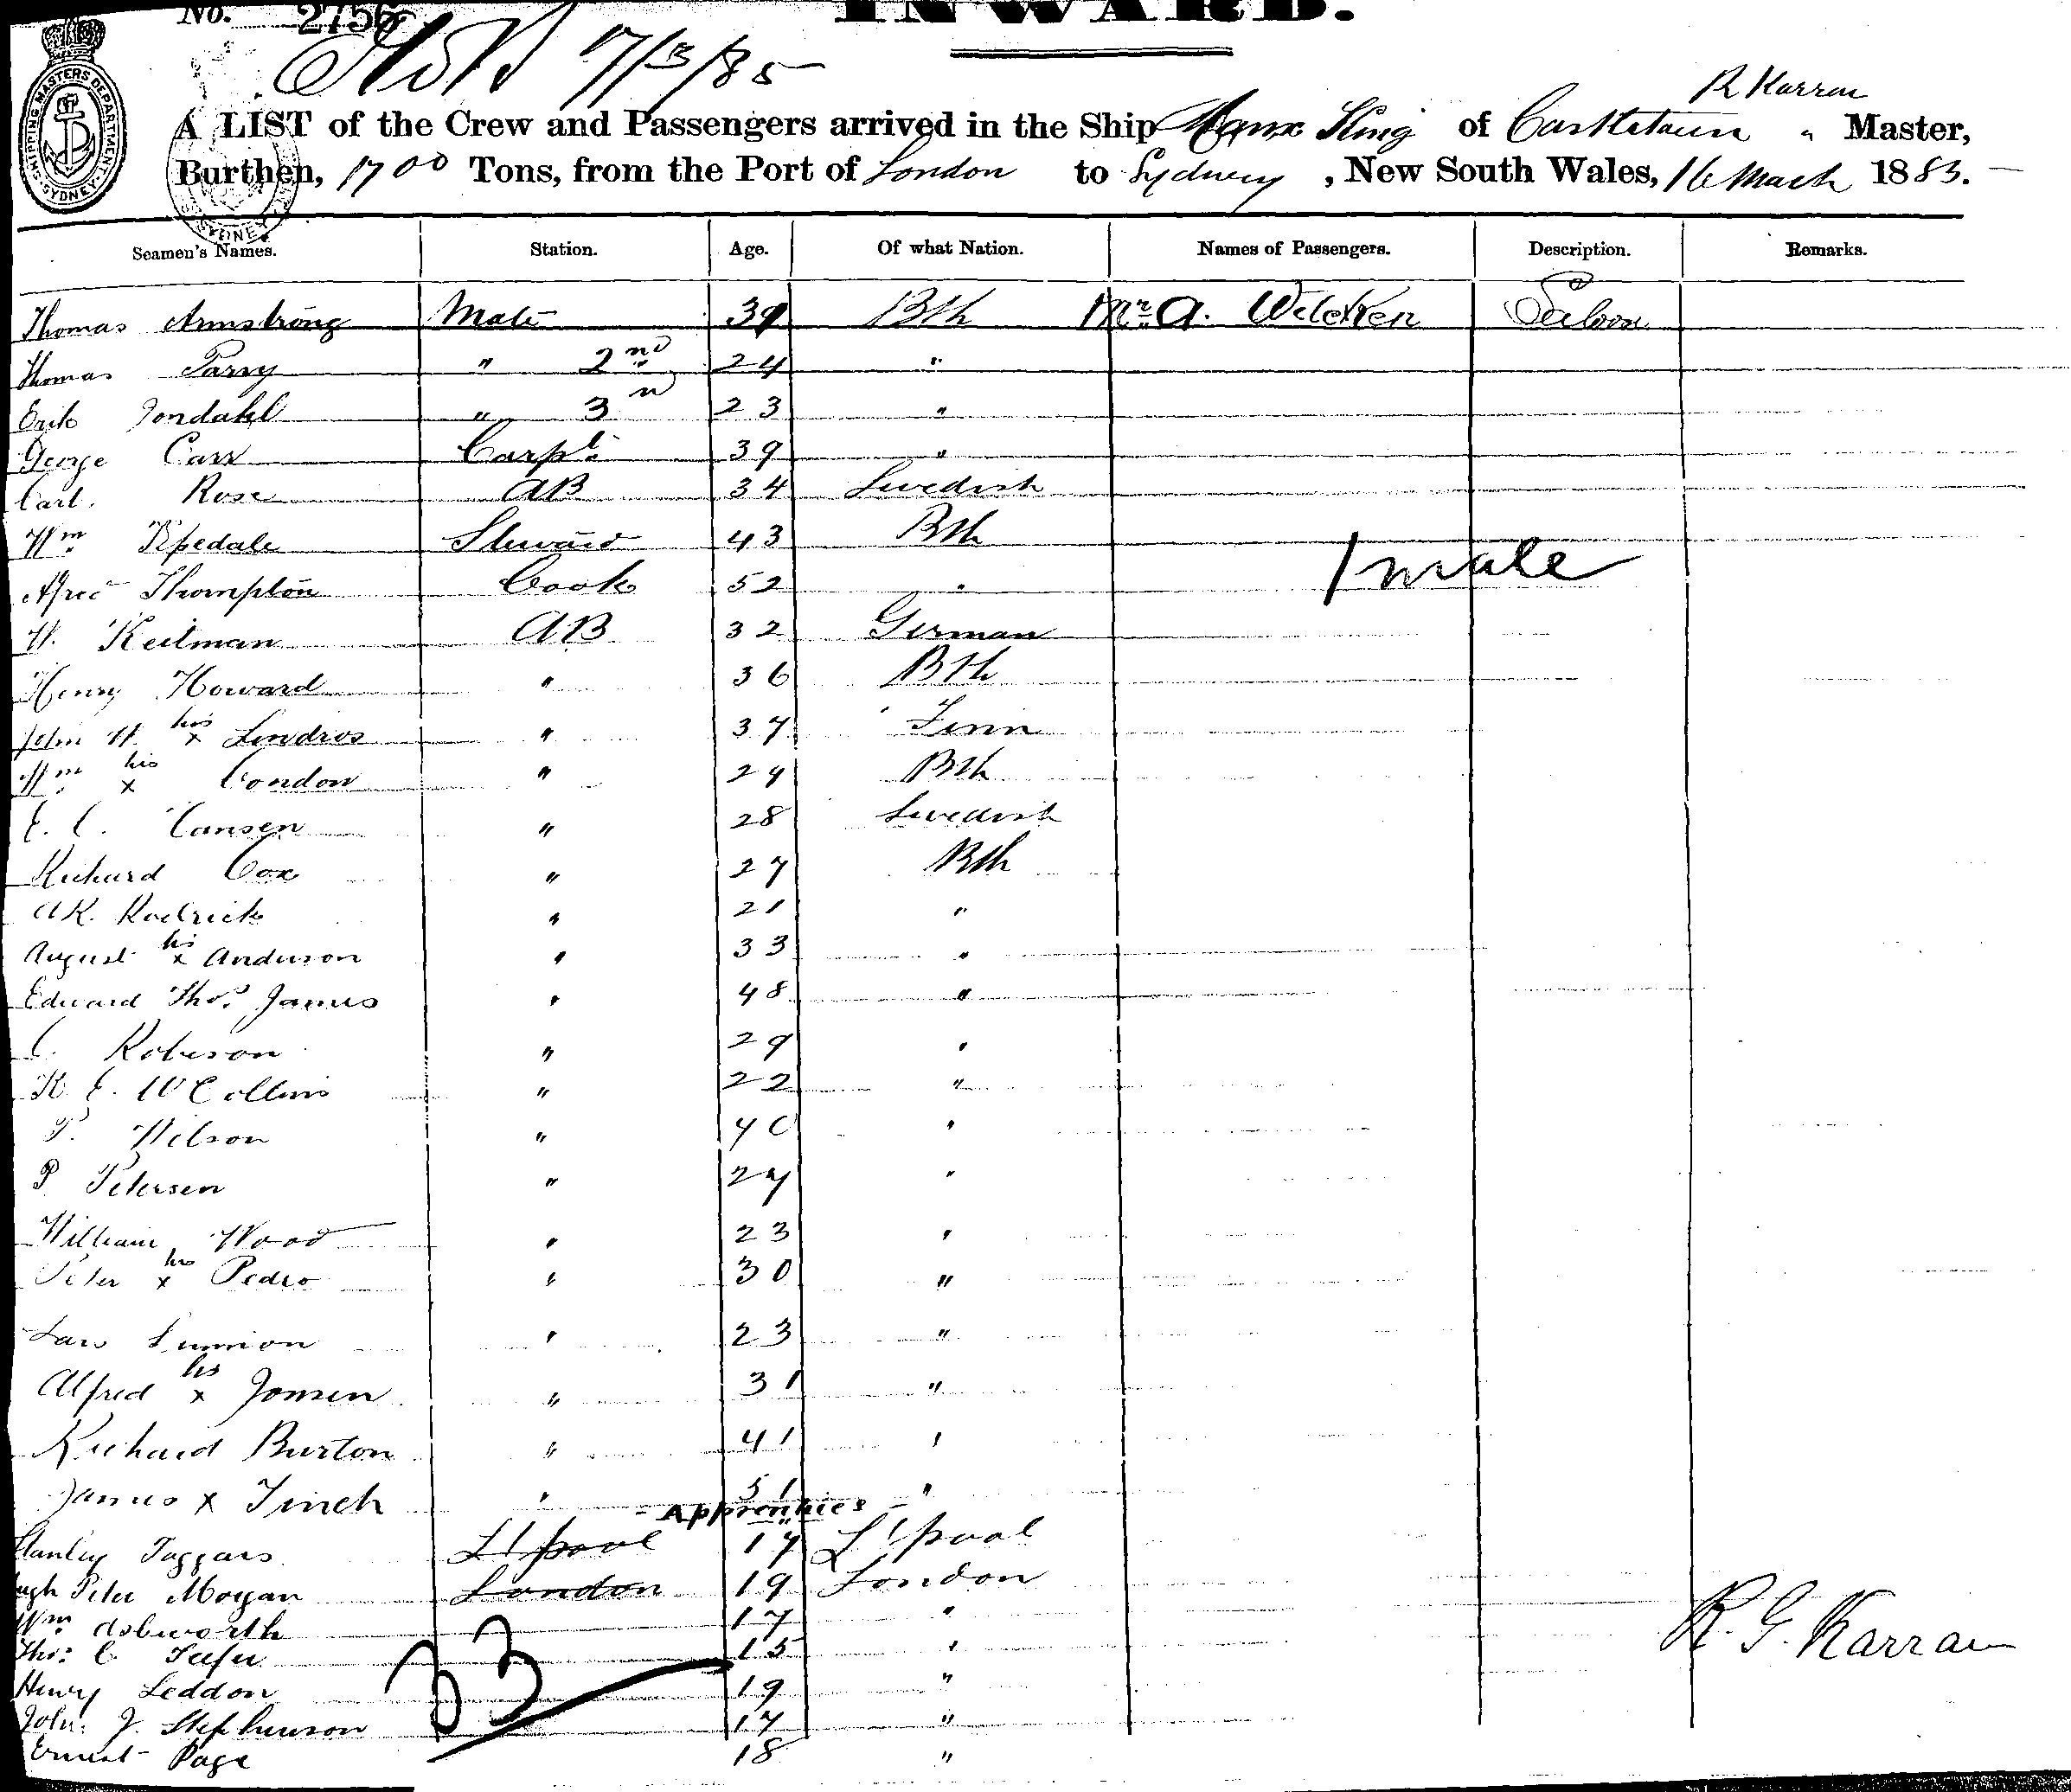 No. 2756
INWARD.
17/3/85
R Karran
A LIST of the Crew and Passengers arrived in the Ship Manx King of Castletown " Master,
Burthen, 1700 Tons, from the Port of London to Sydney, New South Wales, 16 March 1885.
SHIPPING MASTERS DEPARTMENT SYDNEY
Seamen's Names. Station. Age. Of what Nation. Names of Passengers. Description. Remarks.
Thomas Armstrong Mate 39 Bth Mr. A. Wilcken Saloon
Thomas Parry " 2nd 24 "
Erik Jondahl " 3rd 23 "
George Carr Carpt. 39 "
Carl Rose AB 34 Swedish
Wm Ripedale Steward 43 Bth
1 male
Alfred Thompson Cook 52 "
H. Keitman AB 32 German
Henry Howard " 36 Bth
John H. his x Lindros " 37 Finn
Wm his x Condon " 29 Bth
E. C. Cansen " 28 Swedish
Richard Cox " 27 Bth
A K. Rodrick " 21 "
August his x Anderson " 33 "
Edward Thos. James " 48 "
C. Robeson " 29 "
R. E. W Collins " 22 "
T. Wilson " 40 "
P Petersen " 27 "
William Wood " 23 "
Peter his x Pedro " 30 "
Lars " 23 "
Alfred his x Jonsen " 31 "
Richard Burton " 41 "
James x Finch " 51 "
- Apprentices -
Stanley Taggars L'pool 17 L'pool
Hugh Peter Morgan London 19 London
Wm Dobworth 17 "
Thos: C. 15 "
Henry Leddon 19 "
John. J. Stephenson 17 "
Ernest Page 18 "
33
R. G. Karran